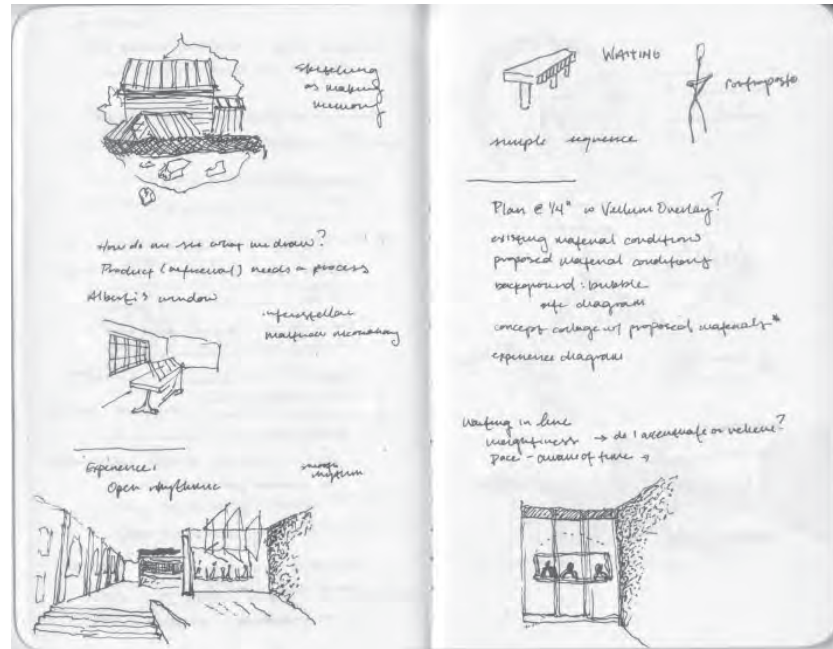 sketching
as making
memory
How do we see what we draw?
Product (material) needs a process
Alberti's window
Experience:
Open rhythmic
WAITING
contraposto
simple sequence
Plan @ 1/4" w Vellum Overlay?
existing material conditions
proposed material conditions
background: bubble
site diagram
concept collage w/ proposed materials*
experience diagram
Waiting in line
weightiness → do I accentuate or relieve?
Pace - aware of time →